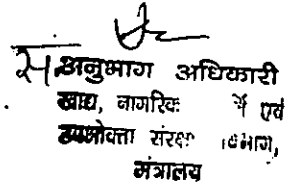 अनुभाग अधिकारी
खाद्य, नागरिक एवं
उपभोक्ता संरक्षण विभाग,
मंत्रालय